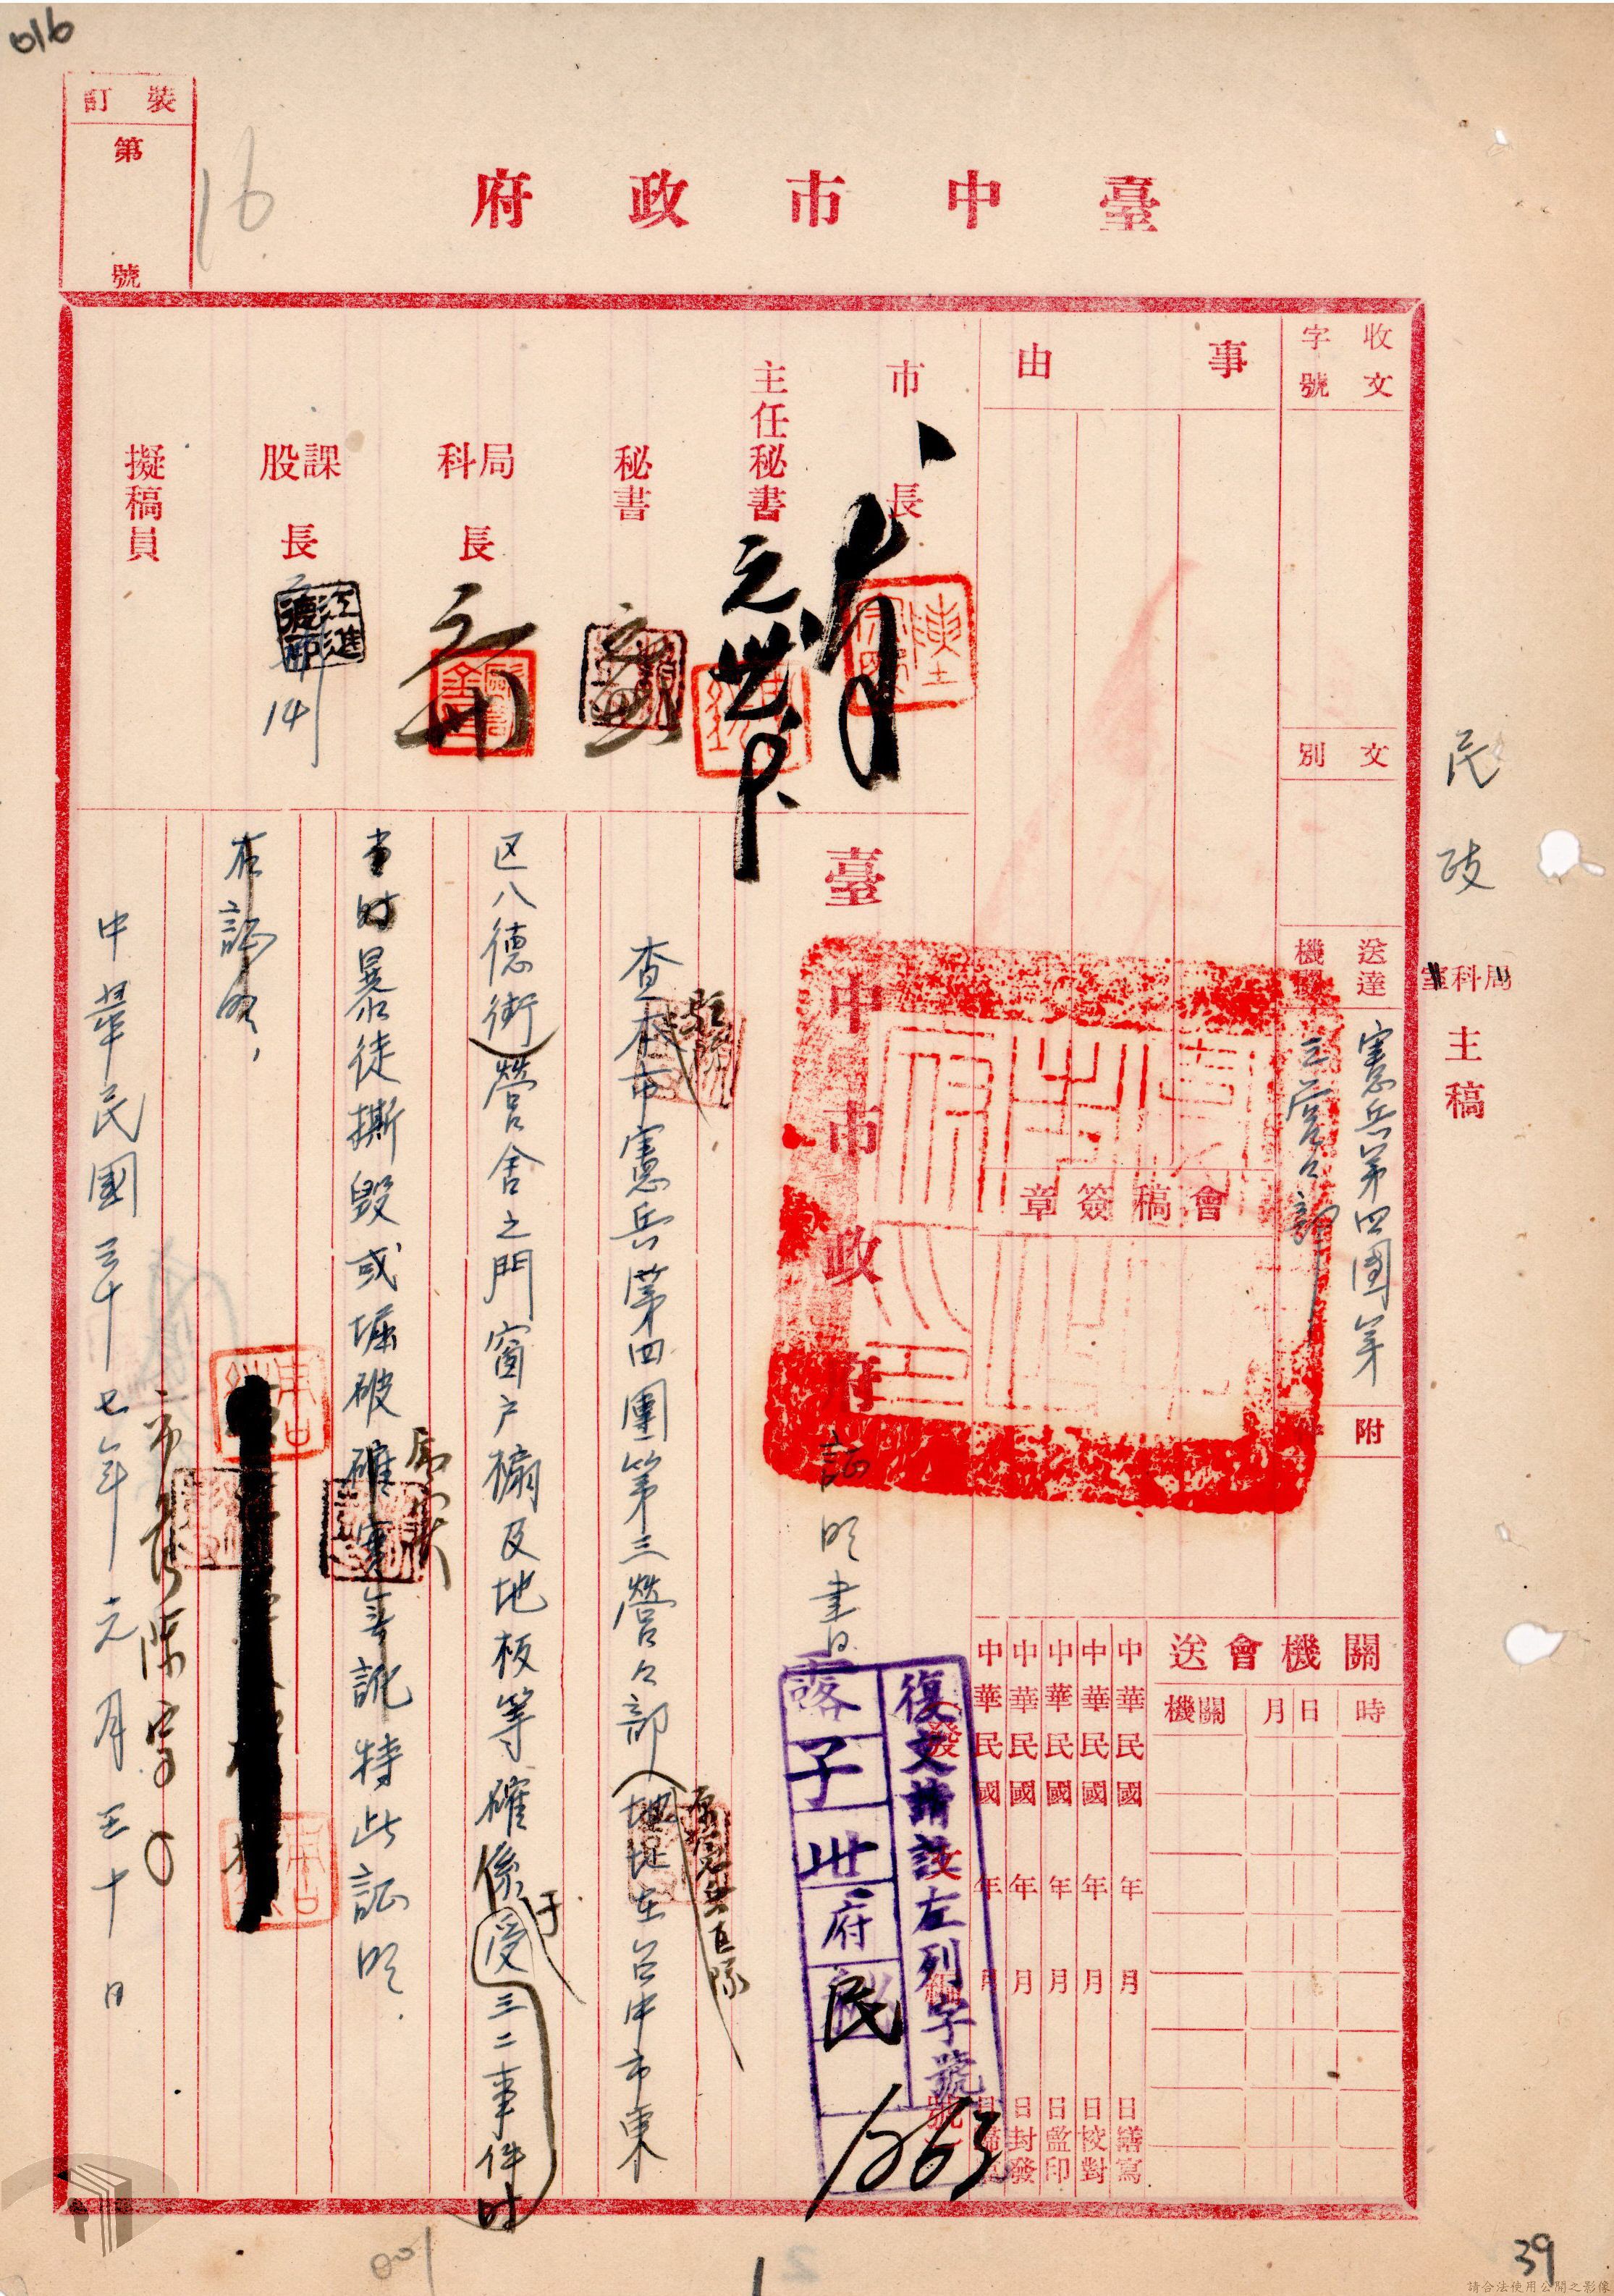 016
裝訂
第
號
16
臺中市政府
收文
字號
文別
送達機關
憲兵第四團第
三營營部
附件
民政
局科室
主稿
事由
會稿簽章
關機會送
時
月日
機關
中華民國 年 月 日繕寫
中華民國 年 月 日校對
中華民國 年 月 日監印
中華民國 年 月 日封發
市長
主任秘書
秘書
局科長
課股長
江進德印
14
擬稿員
臺中市政府證明書
復文請註左列字號
子卅府民
1263
查本市憲兵第四團第三營々部(地址在台中市東
駐隊
原憲兵直隊
区八德街)營舍之門窗戶櫥及地板等確係受三二事件时
于
当时暴徒撕毀或堀破確實無訛特此証明.
屬實
右証明,
市長陳宗〇
中華民國三十七年元月三十日
001
1
2
39
請合法使用公開之影像